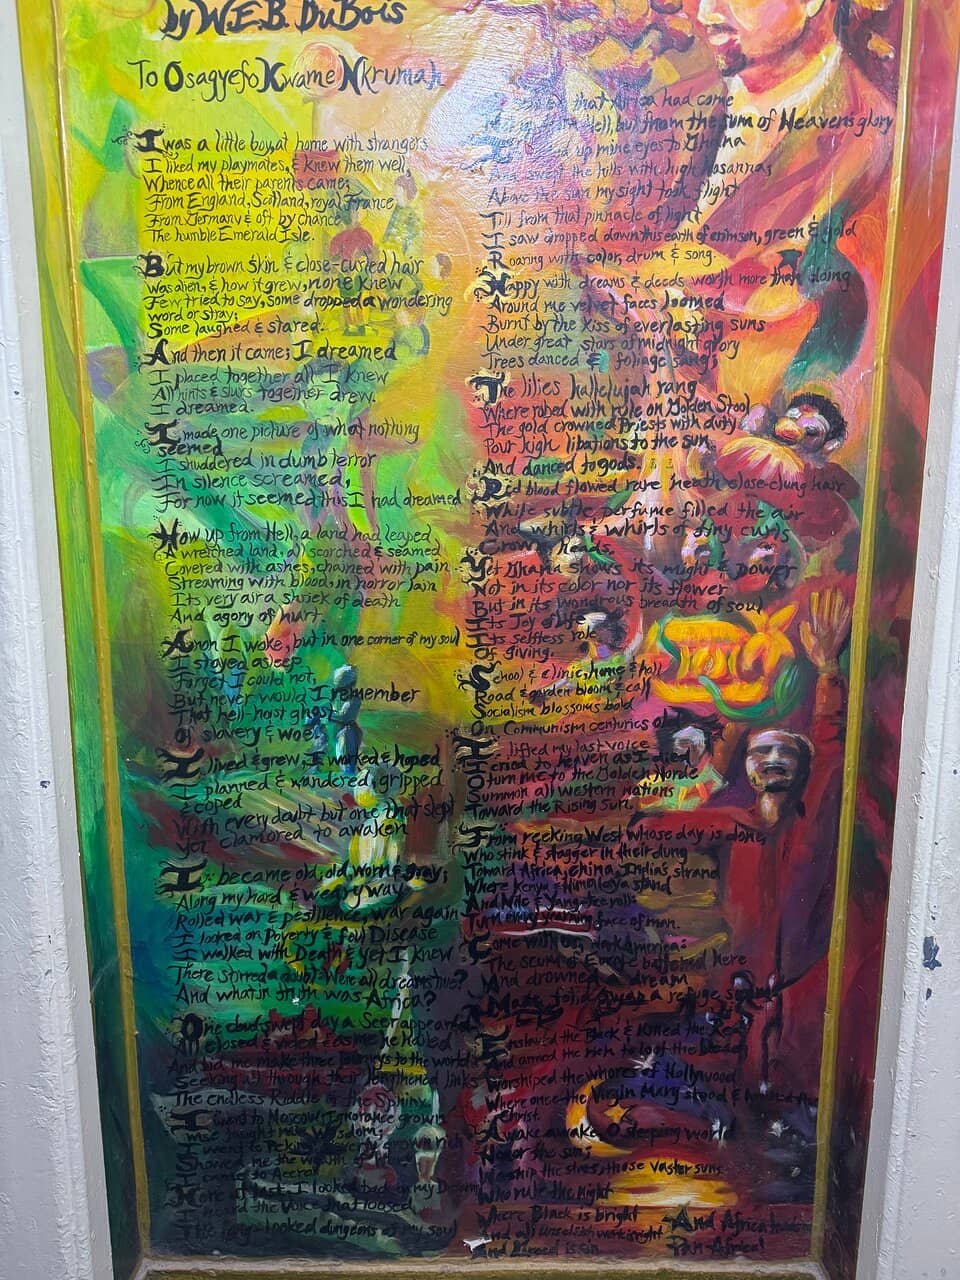 by W.E.B. DuBois
To Osagyefo Kwame Nkrumah
I was a little boy, at home with strangers
I liked my playmates, & knew them well,
Whence all their parents came;
From England, Scotland, royal France
From Germany & oft by chance
The humble Emerald Isle.
But my brown skin & close-curled hair
Was alien, & how it grew, none knew
Few tried to say, some dropped a wondering
word or stray;
Some laughed & stared.
And then it came; I dreamed
I placed together all I knew
All hints & slurs together drew.
I dreamed.
I made one picture of what nothing
seemed
I shuddered in dumb terror
In silence screamed,
For now it seemed this I had dreamed
How up from Hell, a land had leaped
A wretched land, all scorched & seamed
Covered with ashes, chained with pain
Streaming with blood, in horror lain
Its very air a shriek of death
And agony of hurt.
Anon I woke, but in one corner of my soul
I stayed asleep.
Forget I could not,
But never would I remember
That hell-hoist ghost
of slavery & woe.
I lived & grew, I worked & hoped
I planned & wandered, gripped
& coped
With every doubt but one that slept
Yet clamored to awaken
I became old; old, worn & gray;
Along my hard & weary way
Rolled war & pestilence, war again
I looked on Poverty & foul Disease
I walked with Death & yet I knew
There stirred a doubt: Were all dreams true?
And what in truth was Africa?
One cloud-swept day a Seer appeared
All closed & veiled & as me he hailed
And bid me make three journeys to the world
Seeking all through their lengthened links
The endless Riddle of the Sphinx.
I went to Moscow; Ignorance grown
wise taught me Wisdom;
I went to Peking: grown rich
Showed me the wealth of
I came to Accra
Here at last, I looked back on my Dream;
I heard the Voice that loosed
The looked dungeons of my soul
that Africa had come
Hell, but from the sum of Heavens glory
up mine eyes to Ghana
And swept the hills with high hosannas
Above the sun my sight took flight
Till from that pinnacle of light
I saw dropped down this earth of crimson, green & gold
Roaring with color, drum & song.
Happy with dreams & deeds worth more than doing
Around me velvet faces loomed
Burnt by the kiss of everlasting suns
Under great stars of midnight glory
Trees danced & foliage sang;
The lilies hallelujah rang
Where robed with rule on Golden Stool
The gold crowned Priests with duty
Pour high libations to the sun
And danced to gods.
Red blood flowed rare neath close-clung hair
While subtle perfume filled the air
And whirls & whirls of tiny curls
Crowned heads.
Yet Ghana shows its might & power
Not in its color nor its flower
But in its wondrous breadth of soul
Its Joy of life
Its selfless role
Of giving.
School & clinic, home & hall
Road & garden bloom & call
Socialism blossoms bold
On Communism centuries old
I lifted my last voice
cried to heaven as I died
turn me to the Golden Horde
Summon all western nations
Toward the Rising Sun.
From reeking West whose day is done,
Who stink & stagger in their dung
Toward Africa, China, India's strand
Where Kenya & Himalaya stand
And Nile & Yang-tze roll:
Turn every yearning face of man.
Come with us, dark America:
The scum of Europe battened here
And drowned a dream
Made fetid swamp a refuge seem
Enslaved the Black & Killed the Red
And armed the rich to loot the Dead
Worshiped the whores of Hollywood
Where once the Virgin Mary stood &
Christ.
Awake awake O sleeping world
Honor the sun;
Worship the stars, those vaster suns
Who rule the night
Where Black is bright
And all unselfish work is right
And Greed is sin
And Africa
Pan Africa!